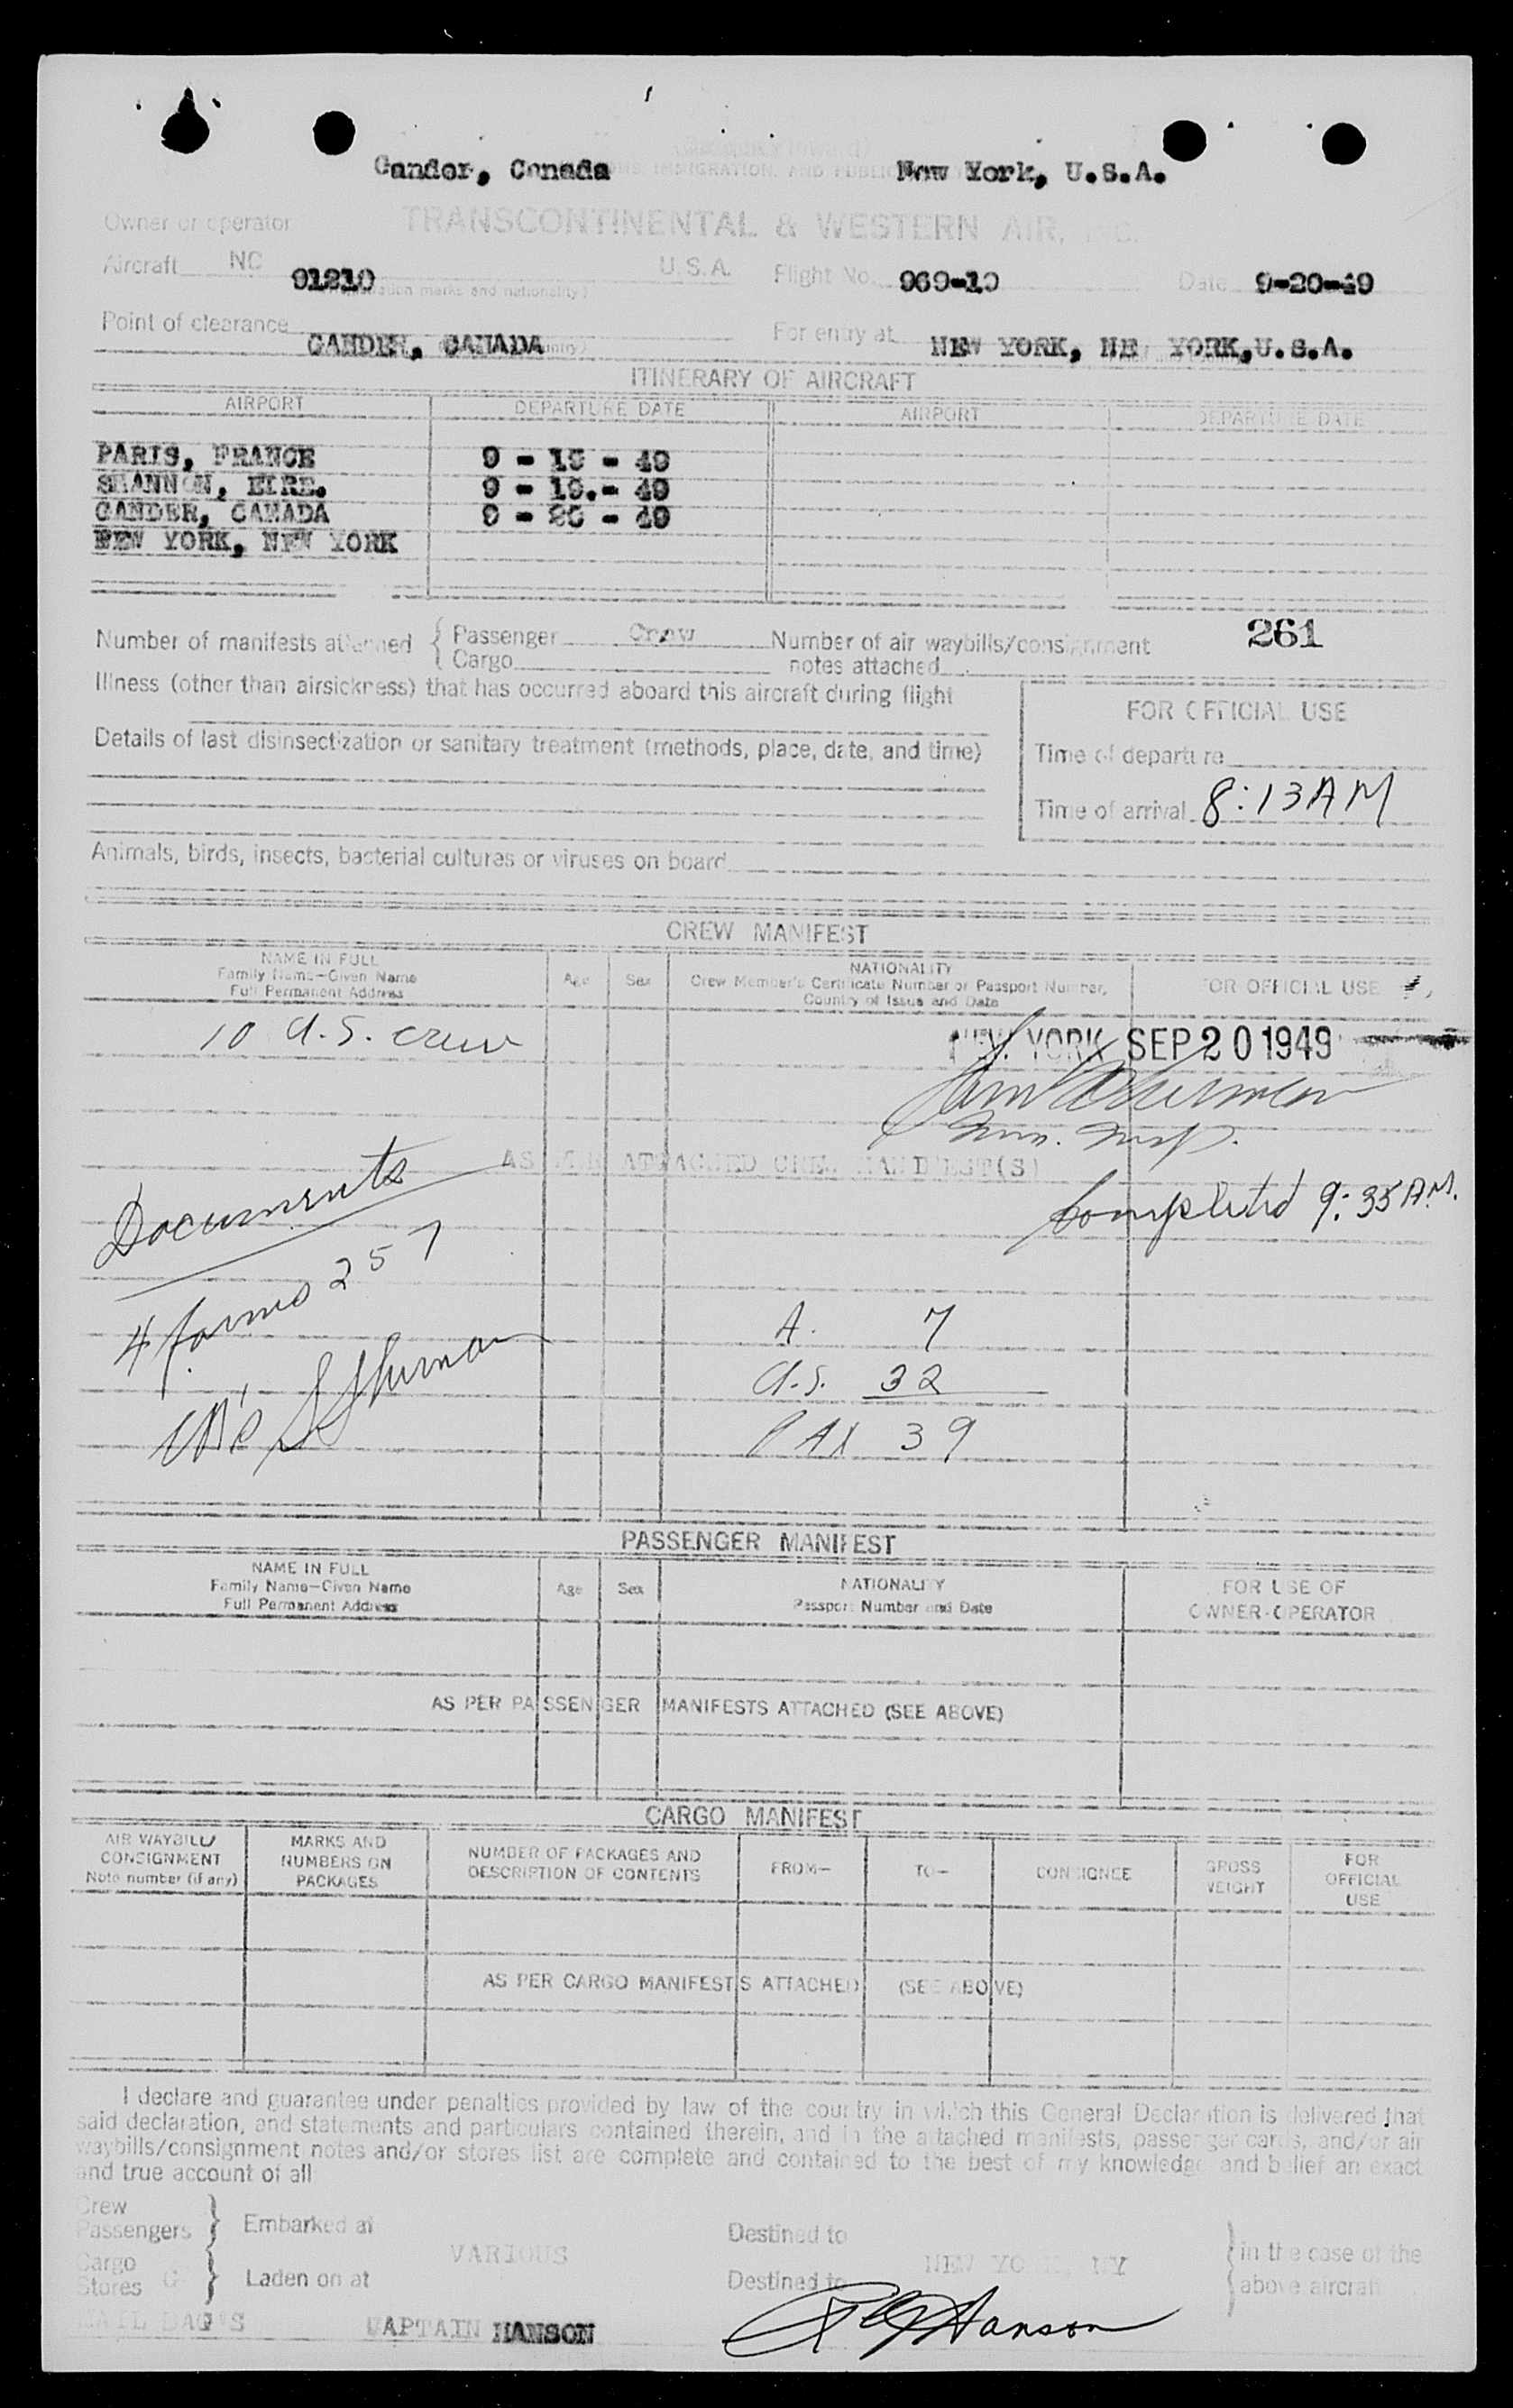 Gander, Canada New York, U.S.A.
IMMIGRATION, AND PUBLIC
Owner or operator TRANSCONTINENTAL & WESTERN AIR, INC.
Aircraft NC 91210 U.S.A. Flight No. 969-19 Date 9-20-49
(Registration marks and nationality)
Point of clearance GANDER, CANADA For entry at NEW YORK, NE YORK, U.S.A.
ITINERARY OF AIRCRAFT
AIRPORT DEPARTURE DATE AIRPORT DEPARTURE DATE
PARIS, FRANCE 9 - 19 - 49
SHANNON, EIRE. 9 - 19.- 49
GANDER, CANADA 9 - 20 - 49
NEW YORK, NEW YORK
Number of manifests attached { Passenger Crew Number of air waybills/consignment 261
Cargo notes attached
Illness (other than airsickness) that has occurred aboard this aircraft during flight
FOR OFFICIAL USE
Details of last disinsectization or sanitary treatment (methods, place, date, and time)
Time of departure
Time of arrival 8:13 AM
Animals, birds, insects, bacterial cultures or viruses on board
CREW MANIFEST
NAME IN FULL
Family Name—Given Name
Full Permanent Address
Age Sex
NATIONALITY
Crew Member's Certificate Number or Passport Number,
Country of Issue and Date
FOR OFFICIAL USE
10 U.S. crew
NEW YORK SEP 20 1949
Imm. Insp.
AS PER ATTACHED CREW MANIFEST(S)
Documents
Completed 9:35 AM.
4 forms 257
A. 7
U.S. 32
PAX 39
PASSENGER MANIFEST
NAME IN FULL
Family Name—Given Name
Full Permanent Address
Age Sex
NATIONALITY
Passport Number and Date
FOR USE OF
OWNER-OPERATOR
AS PER PASSENGER MANIFESTS ATTACHED (SEE ABOVE)
CARGO MANIFEST
AIR WAYBILL/
CONSIGNMENT
Note number (if any)
MARKS AND
NUMBERS ON
PACKAGES
NUMBER OF PACKAGES AND
DESCRIPTION OF CONTENTS
FROM— TO— CONSIGNEE
GROSS
WEIGHT
FOR
OFFICIAL
USE
AS PER CARGO MANIFESTS ATTACHED (SEE ABOVE)
I declare and guarantee under penalties provided by law of the country in which this General Declaration is delivered that
said declaration, and statements and particulars contained therein, and in the attached manifests, passenger cards, and/or air
waybills/consignment notes and/or stores list are complete and contained to the best of my knowledge and belief an exact
and true account of all
Crew
Passengers } Embarked at Destined to
VARIOUS NEW YORK, NY } in the case of the
Cargo
Stores } Laden on at Destined to above aircraft
MAIL BAG'S CAPTAIN HANSON Hanson